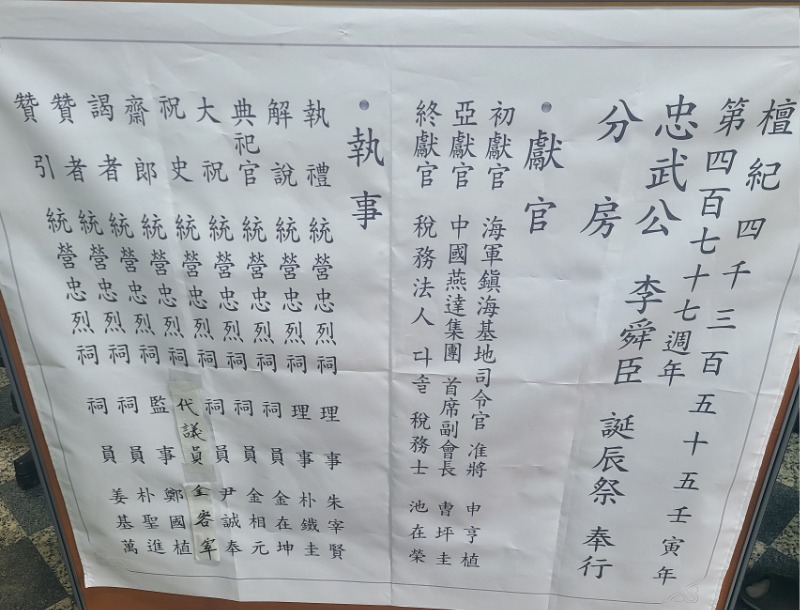 檀紀四千三百五十五壬寅年
第四百七十七週年
忠武公 李舜臣 誕辰祭 奉行
分房
• 獻官
初獻官 海軍鎭海基地司令官 准將 申亨植
亞獻官 中國燕達集團 首席副會長 曺坪圭
終獻官 稅務法人 다솔 稅務士 池在榮
• 執事
執禮 統營忠烈祠 理事 朱宰賢
解說 統營忠烈祠 理事 朴鐵圭
典祀官 統營忠烈祠 祠員 金在坤
大祝 統營忠烈祠 祠員 金相元
祝史 統營忠烈祠 祠員 尹誠奉
齋郎 統營忠烈祠 代議員
謁者 統營忠烈祠 監事 鄭國植
贊者 統營忠烈祠 祠員 朴聖進
贊引 統營忠烈祠 祠員 姜基萬